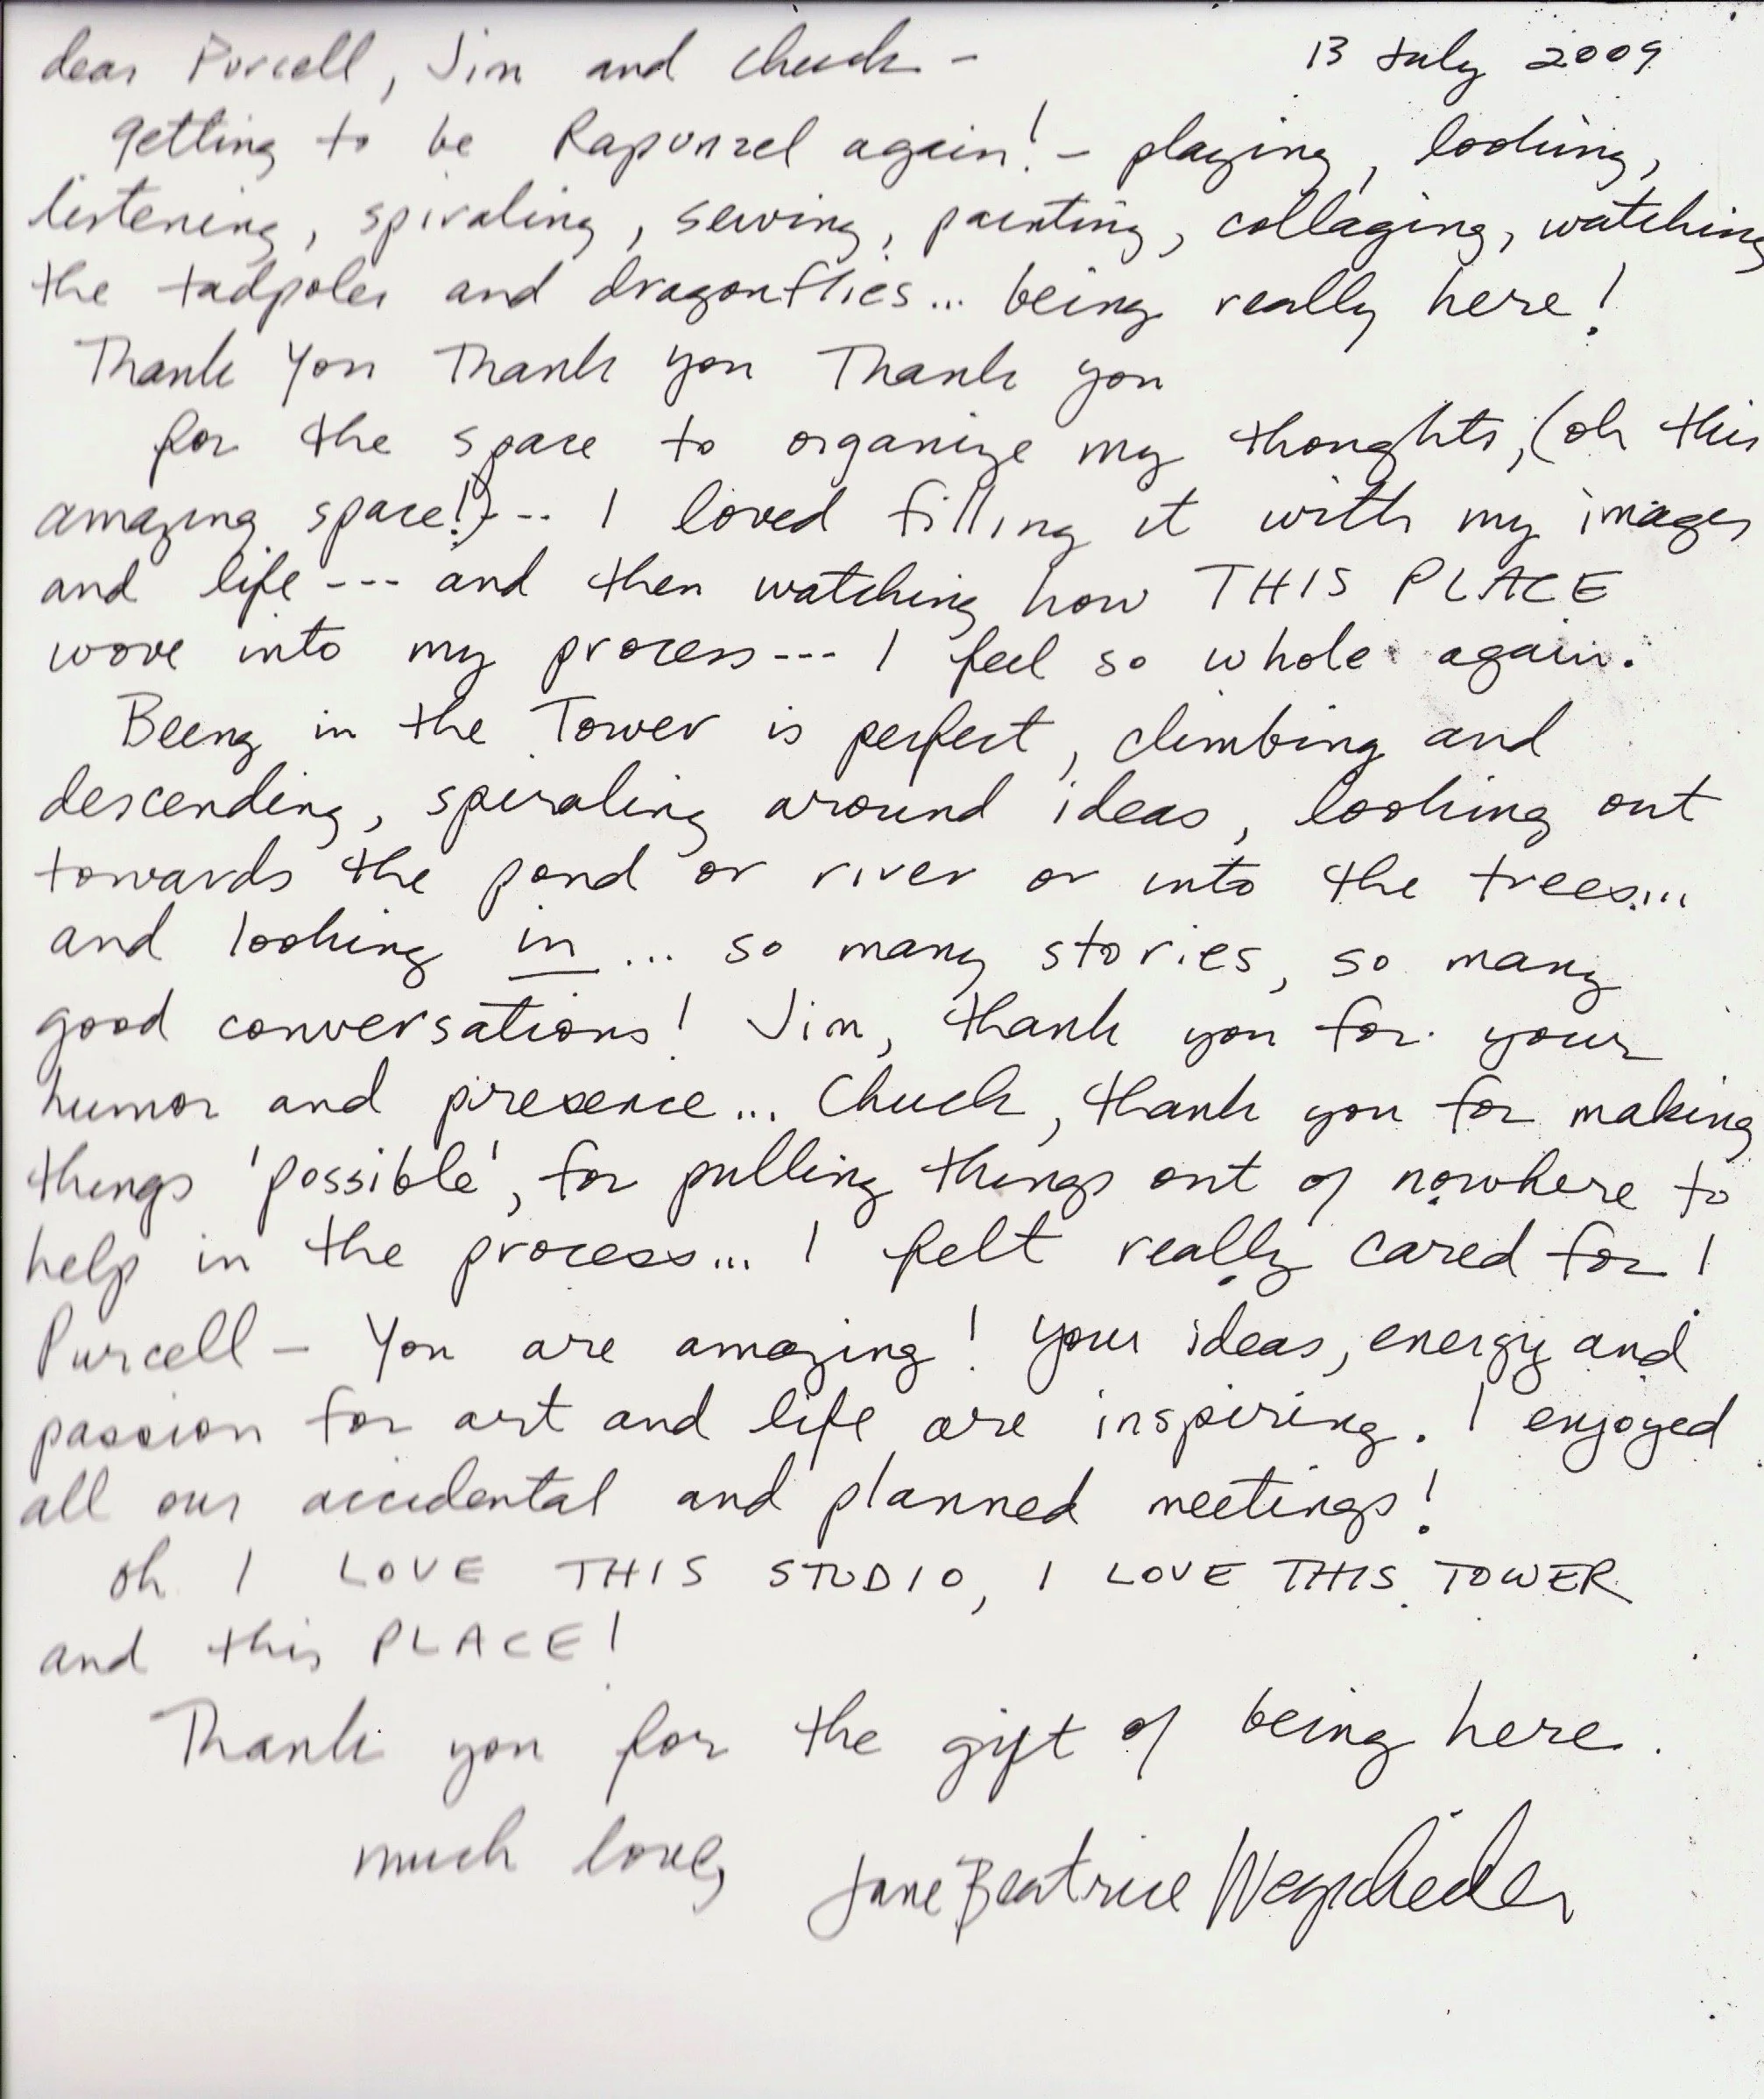 dear Purcell, Jim and Chuck - 13 July 2009
getting to be Rapunzel again! - playing, looking,
listening, spiraling, sewing, painting, collaging, watching
the tadpoles and dragonflies... being really here!
Thank You Thank you Thank you
for the space to organize my thoughts, (oh this
amazing space!) --- I loved filling it with my images
and life --- and then watching how THIS PLACE
wove into my process --- I feel so whole again.
Being in the Tower is perfect, climbing and
descending, spiraling around ideas, looking out
towards the pond or river or into the trees...
and looking in ... so many stories, so many
good conversations! Jim, thank you for your
humor and presence... Chuck, thank you for making
things 'possible', for pulling things out of nowhere to
help in the process... I felt really cared for!
Purcell - You are amazing! Your ideas, energy and
passion for art and life are inspiring. I enjoyed
all our accidental and planned meetings!
oh I LOVE THIS STUDIO, I LOVE THIS TOWER
and this PLACE!
Thank you for the gift of being here.
much love, Jane Beatrice Wegscheider